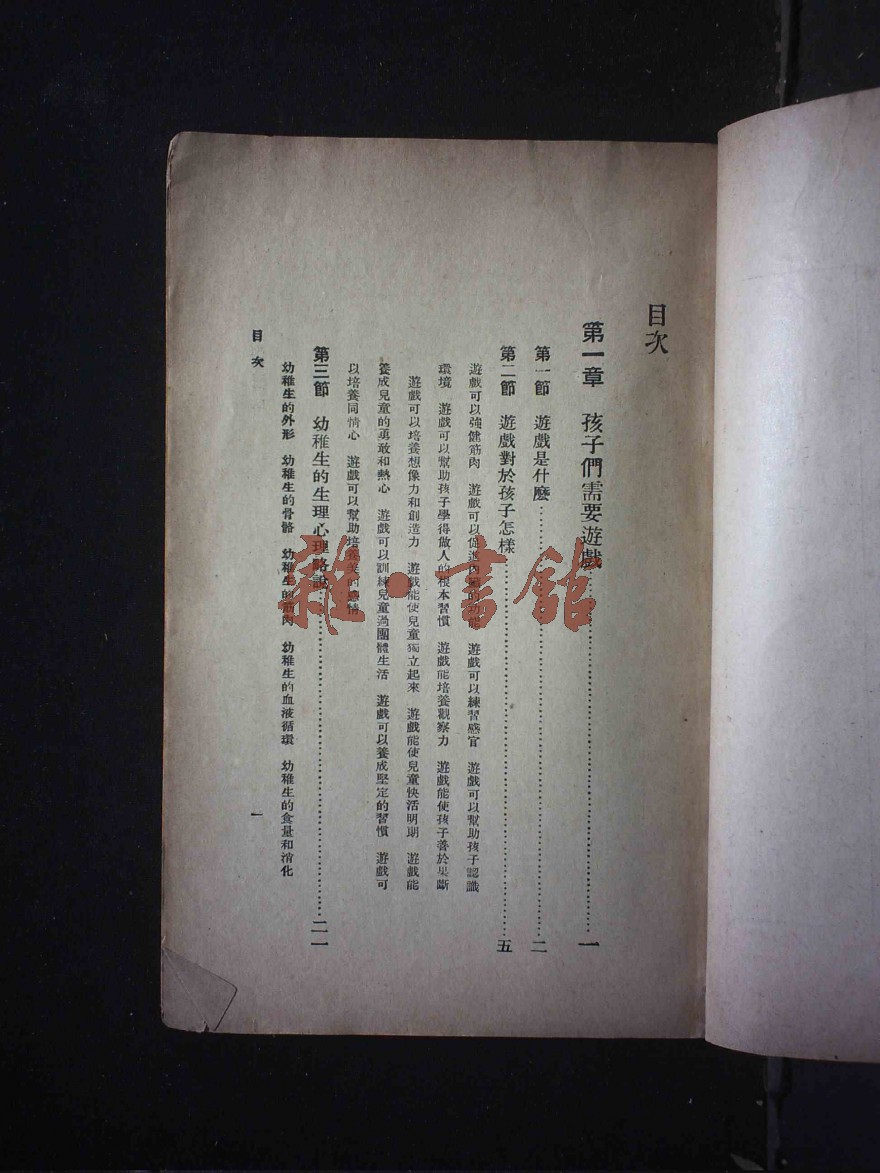 目次
第一章　孩子們需要遊戲……一
第一節　遊戲是什麼……二
第二節　遊戲對於孩子怎樣……五
遊戲可以強健筋肉　遊戲可以促進內臟的功能　遊戲可以練習感官　遊戲可以幫助孩子認識
環境　遊戲可以幫助孩子學得做人的根本習慣　遊戲能培養觀察力　遊戲能使孩子善於果斷
遊戲可以培養想像力和創造力　遊戲能使兒童獨立起來　遊戲能使兒童快活明朗　遊戲能
養成兒童的勇敢和熱心　遊戲可以訓練兒童過團體生活　遊戲可以養成堅定的習慣　遊戲可
以培養同情心　遊戲可以幫助培養美的感情
第三節　幼稚生的生理心理略說……二一
幼稚生的外形　幼稚生的骨骼　幼稚生的筋肉　幼稚生的血液循環　幼稚生的食量和消化
目次
一
雜·書館